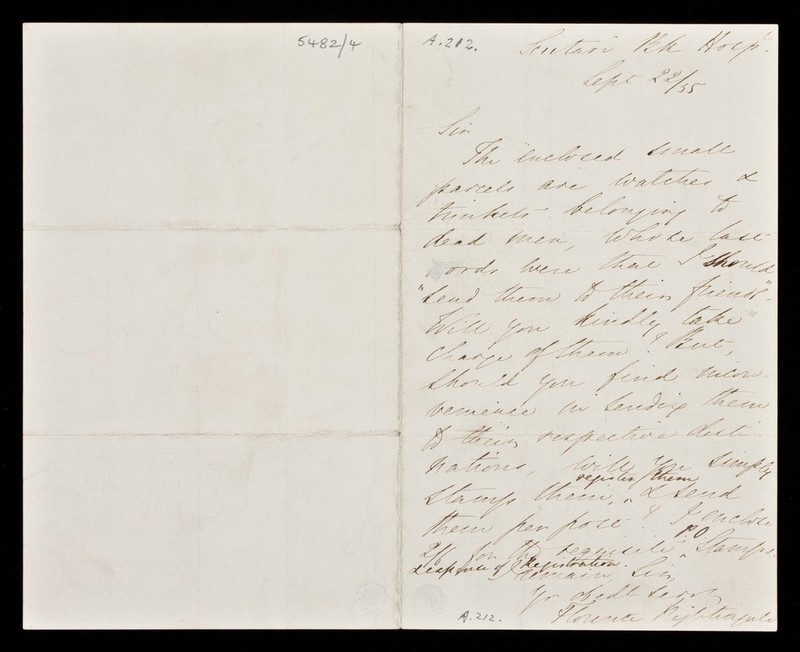 5482/4
A.212.
Scutari Bk Hospl.
Sept 22/55
Sir
The enclosed small
parcels are watches &
trinkets belonging to
dead men, whose last
words were that I should
"send them to their friends".
Will you kindly take
charge of them? But,
should you find incon-
venience in sending them
to their respective desti-
nations, will you simply
register them
stamp them, ^ & send
them per post? I enclose
P.O
for the requisite ^ Stamps
& expense of Registration.
I remain, Sir,
yr obedt servt
Florence Nightingale
A.212.